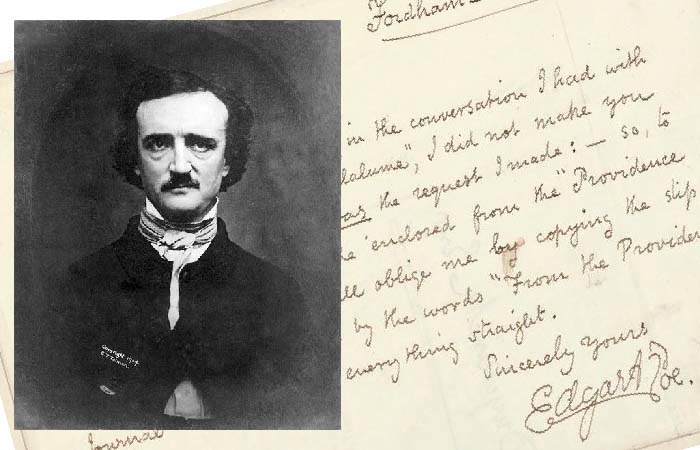 Fordham
in the conversation I had with
lalume", I did not make you
as the request I made: — so, to
he enclosed from the "Providence
ll oblige me by copying the slip
by the words "From the Providen
everything straight.
Sincerely yours
Edgar A Poe.
Copyright 1904
Journal